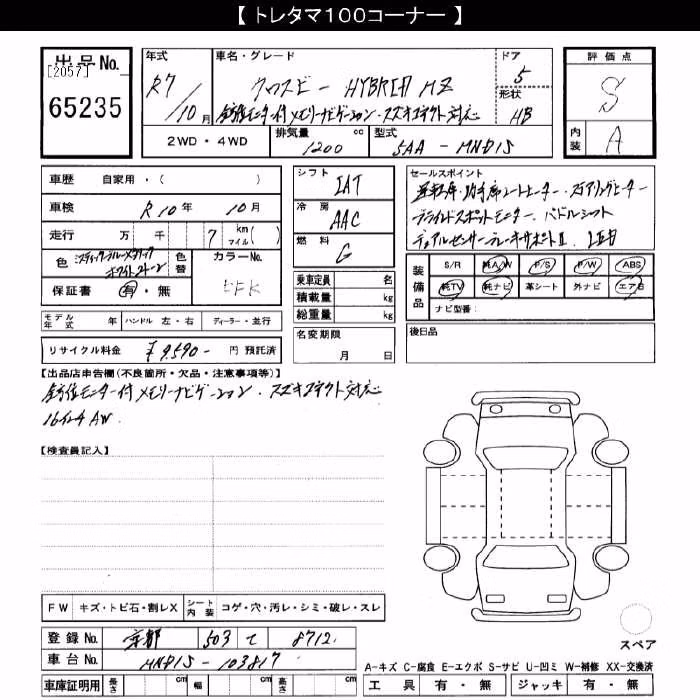 【 トレタマ100コーナー 】
出品No.
[2057]
65235
年式
R7/10月
車名・グレード
クロスビー HYBRID MZ
全方位モニター付メモリーナビゲーション・スズキコネクト対応
ドア
5
形状
HB
2WD・4WD
排気量
1200 cc
型式
5AA - MND1S
評価点
S
内装
A
車歴 自家用・( )
車検 R10年 10月
走行 万 千 7 km マイル( )
色
色替
カラーNo.
保証書 有・無
モデル年式 年 ハンドル 左・右 ディーラー・並行
リサイクル料金 ¥9,590- 円 預託済
シフト
IAT
冷房
AAC
燃料
G
乗車定員 名
積載量 kg
総重量 kg
名変期限
月 日
セールスポイント
運転席・助手席シートヒーター・ステアリングヒーター
ブラインドスポットモニター・パドルシフト
デュアルセンサーブレーキサポートⅡ・LED
装備品
S/R 純A/W P/S P/W ABS
純TV 純ナビ 革シート 外ナビ エアB
ナビ型番:
後日品
【出品店申告欄(不良箇所・欠品・注意事項等)】
全方位モニター付メモリーナビゲーション・スズキコネクト対応
16インチAW
【検査員記入】
FW キズ・トビ石・割レX シート内装 コゲ・穴・汚レ・シミ・破レ・スレ
登録No. 京都 503 て 8712
車台No. MND1S - 103817
車庫証明用 長さ cm 幅 cm 高さ cm
スペア
A-キズ C-腐食 E-エクボ S-サビ U-凹ミ W-補修 XX-交換済
工具 有・無 ジャッキ 有・無